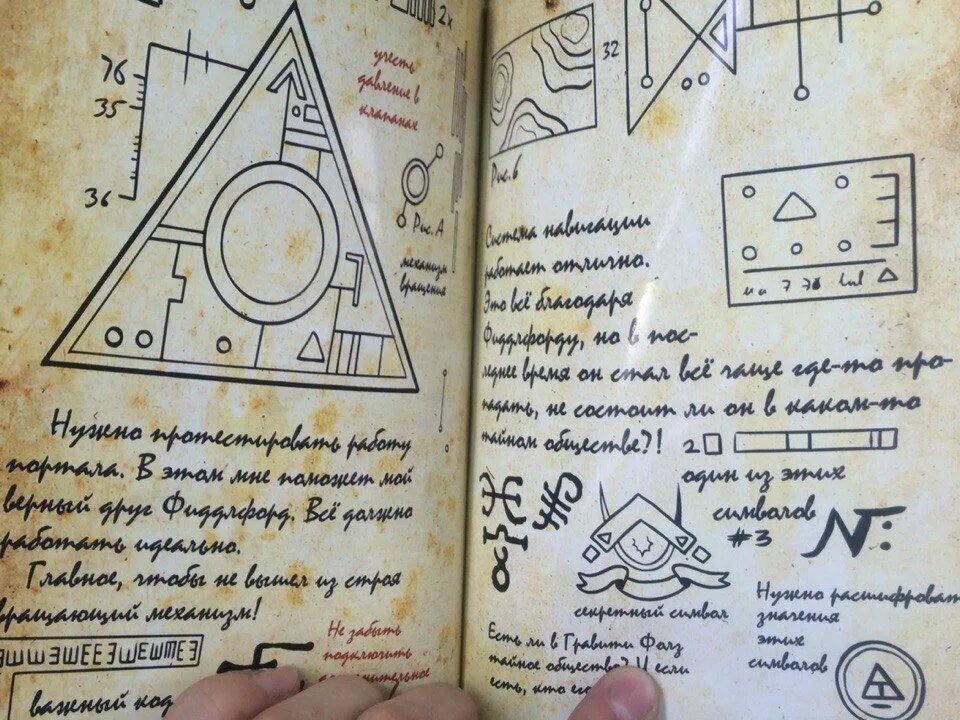 2x
76
35
36
учесть
давление в
клапанах
Рис. А
механизм
вращения
Нужно протестировать работу
портала. В этом мне поможет мой
верный друг Фиддлфорд. Всё должно
работать идеально.
Главное, чтобы не вышел из строя
вращающий механизм!
важный код
Не забыть
подключить
32
Рис. 6
Система навигации
работает отлично.
Это всё благодаря
Фиддлфорду, но в пос-
леднее время он стал всё чаще где-то про-
падать, не состоит ли он в каком-то
тайном обществе?!
2
один из этих
символов
#3
секретный символ
Есть ли в Гравити Фолз
тайное общество? И если
есть, кто
Нужно расшифровать
значения
этих
символов